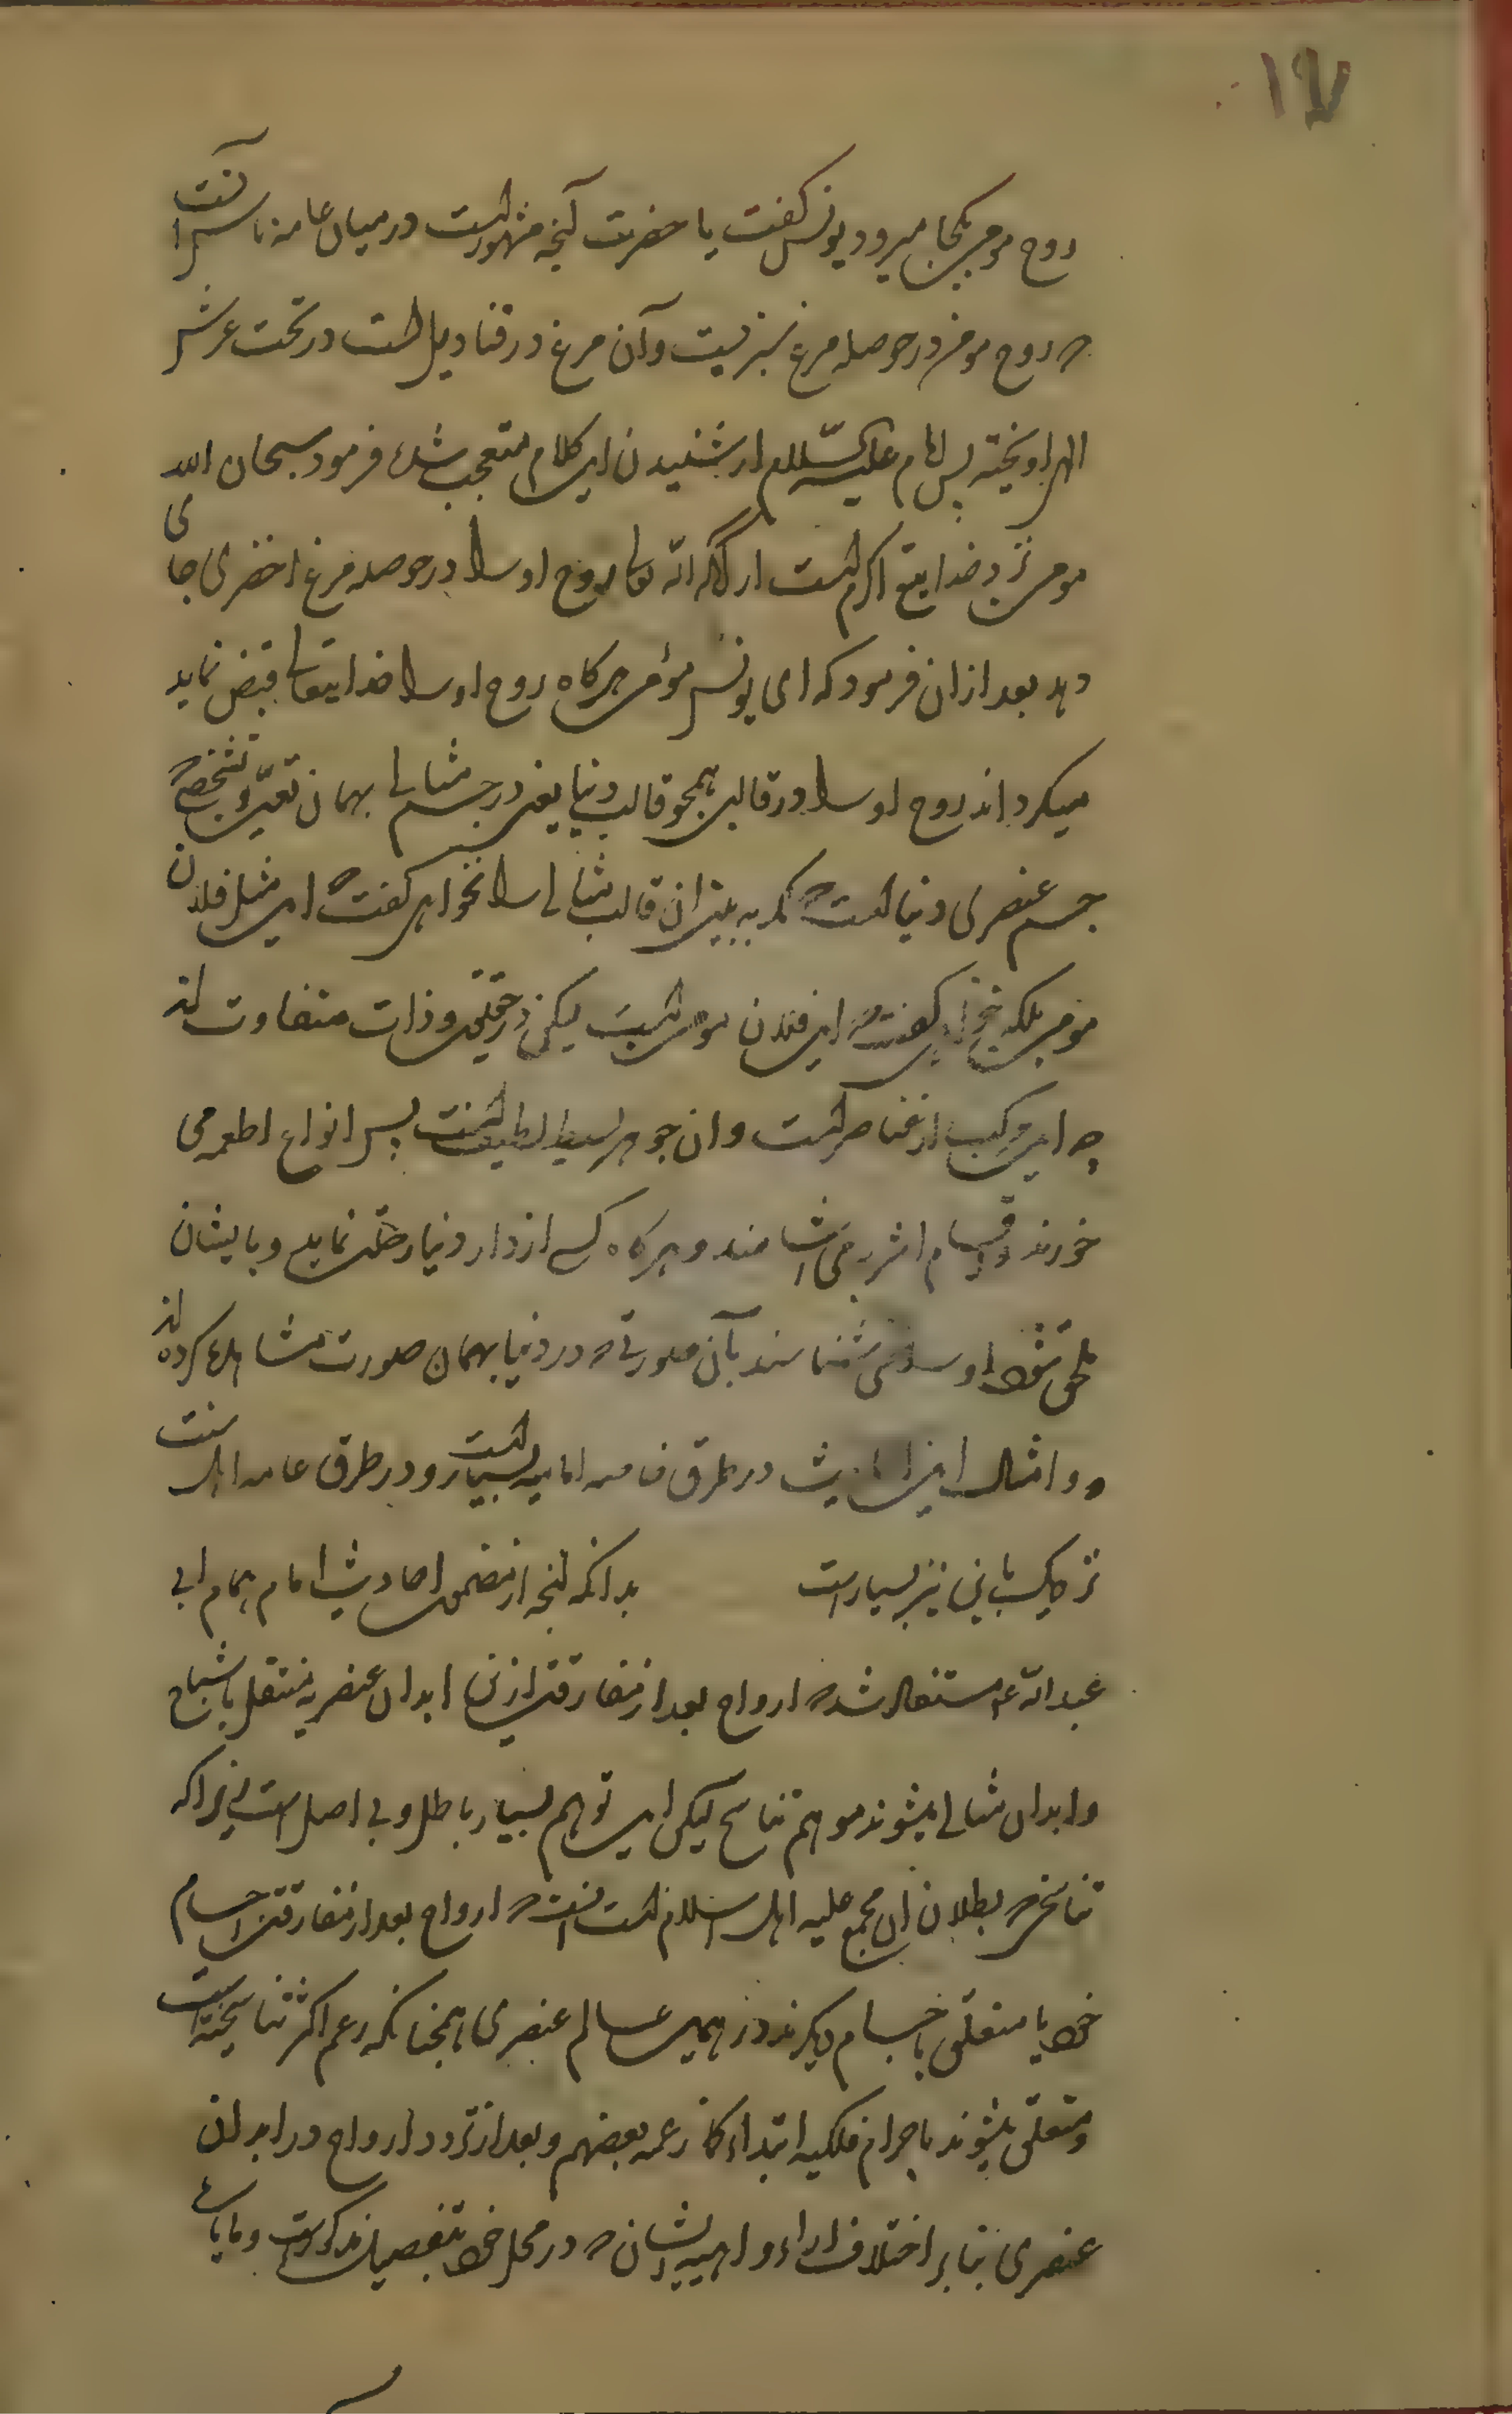 ۱۹۷
روح مومن بکجا میرود یونس گفت یا حضرت آنچه مشهور است در میان عامه ناس آنست
که روح مومن در حوصله مرغ سبزیست و آن مرغ در قنادیل است در تحت عرش
الهی اویخته پس امام علیه السّلام از شنیدن این کلام متعجب شده فرمود سبحان الله
مومن نزد خدایتع اکرم است از آنکه الله تعالی روح او را در حوصله مرغ اخضری جای
دهد بعد ازان فرمود که ای یونس مؤمن هرکاه روح او را خدایتعالی قبض نماید
میکرداند روح او را در قالبی همچو قالب دنیا یعنی در جسم مثالی بهمان تعیّن و تشخص که
جسم عنصری دنیا است که اگر به بینی ان قالب مثالی را نخواهی گفت که این مثل فلان
مومن بلکه خواهی گفت که این فلان مومن است لیکن در حقیقت و ذات متفاوت اند
چه این مرکب از عناصر است و ان جوهر بسیط لطیفست پس انواع اطعمه می
خورند و اقسام اشربه می اشامند و هرکاه کسی از دار دنیا رحلت نماید و بایشان
ملحق شود او را می شناسند بآن صورتی که در دنیا بهمان صورت مشاهده کرده اند
و امثال این احادیث در طرق خاصه امامیه بسیار است و در طرق عامه اهل سنت
نزدیک باین نیز بسیار است بدانکه آنچه از مضمون احادیث امام همام ابی
عبدالله ع مستفاد شد که ارواح بعد از مفارقت ازین ابدان عنصریه منتقل باشباح
و ابدان مثالی میشوند موهم تناسخ لیکن این توهم بسیار باطل و بی اصل است زیراکه
تناسخی که بطلان ان مجمع علیه اهل اسلام است انست که ارواح بعد از مفارقت اجسام
خود یا متعلق باجسام دیکرند در همین عالم عنصری همچنانکه زعم اکثر تناسخیه است
و متعلق میشوند باجرام فلکیه ابتداء کما زعمه بعضهم و بعد از تردد ارواح در ابدان
عنصری بنابر اختلاف اراء واهیه ایشان که در محل خود بتفصیل مذکور است و مایاب